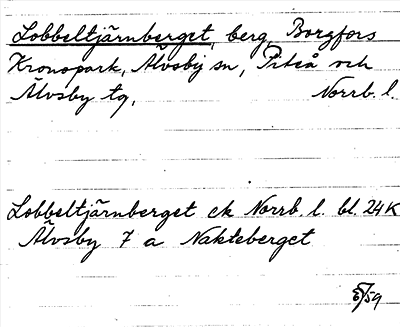 Lobbeltjärnberget, berg, Borgfors
Kronopark, Älvsby sn, Piteå och
Älvsby tg, Norrb. l.
Lobbeltjärnberget ek Norrb. l. bl. 24K
Älvsby 7 a Nakteberget
/59